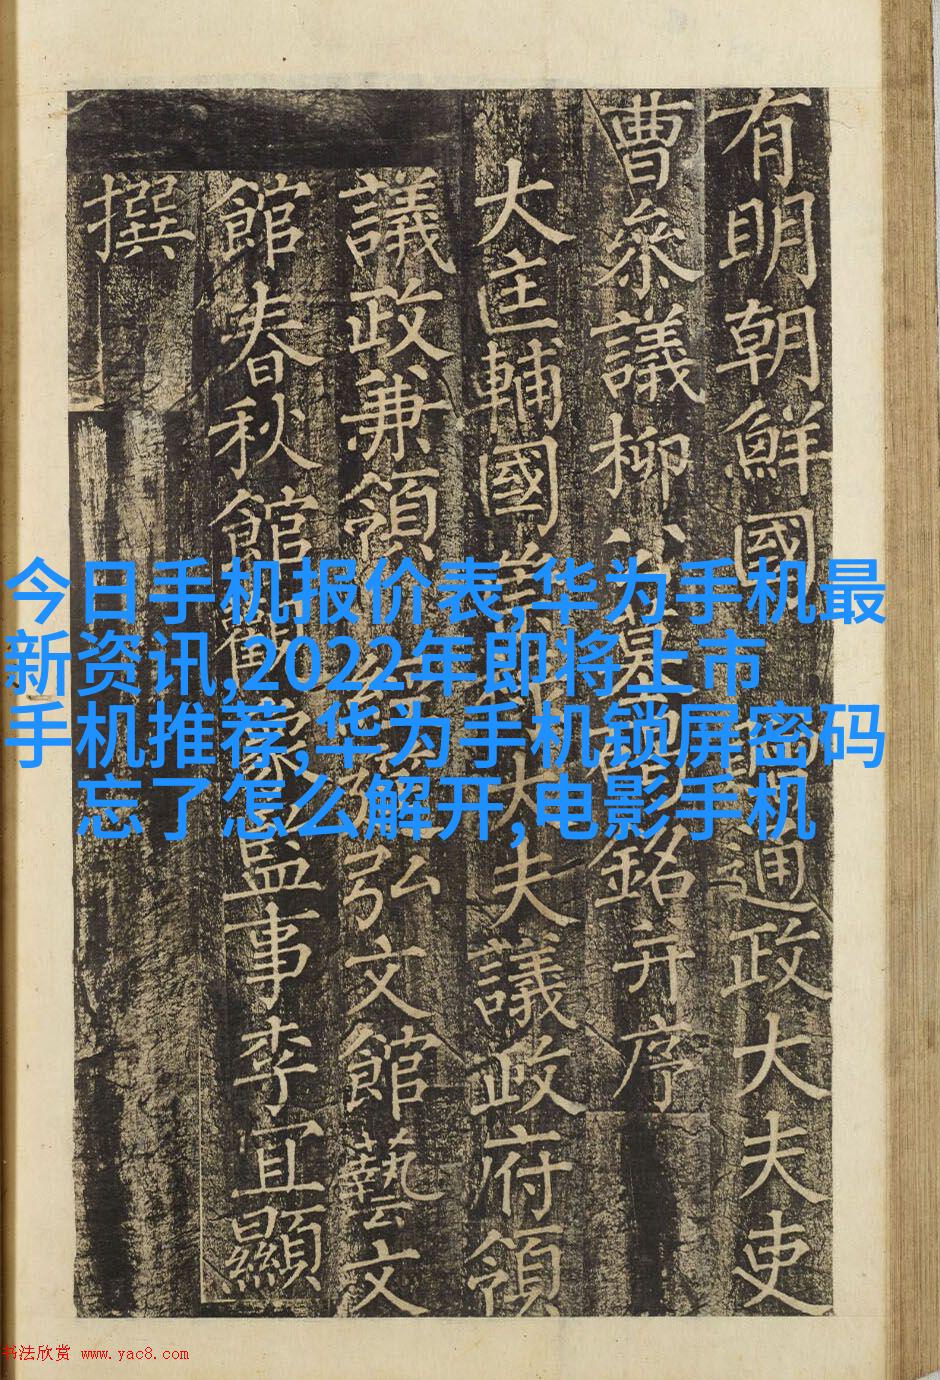 今日手机报价表,华为手机最
新资讯,2022年即将上市
手机推荐,华为手机锁屏密码
忘了怎么解开,电影手机
有明朝鮮國通政大夫吏
曹參議柳公墓銘并序
大匡輔國大夫議政府領
議政兼領經筵弘文館藝文
館春秋館觀象監事李宜顯
撰
书法欣赏 www.yac8.com